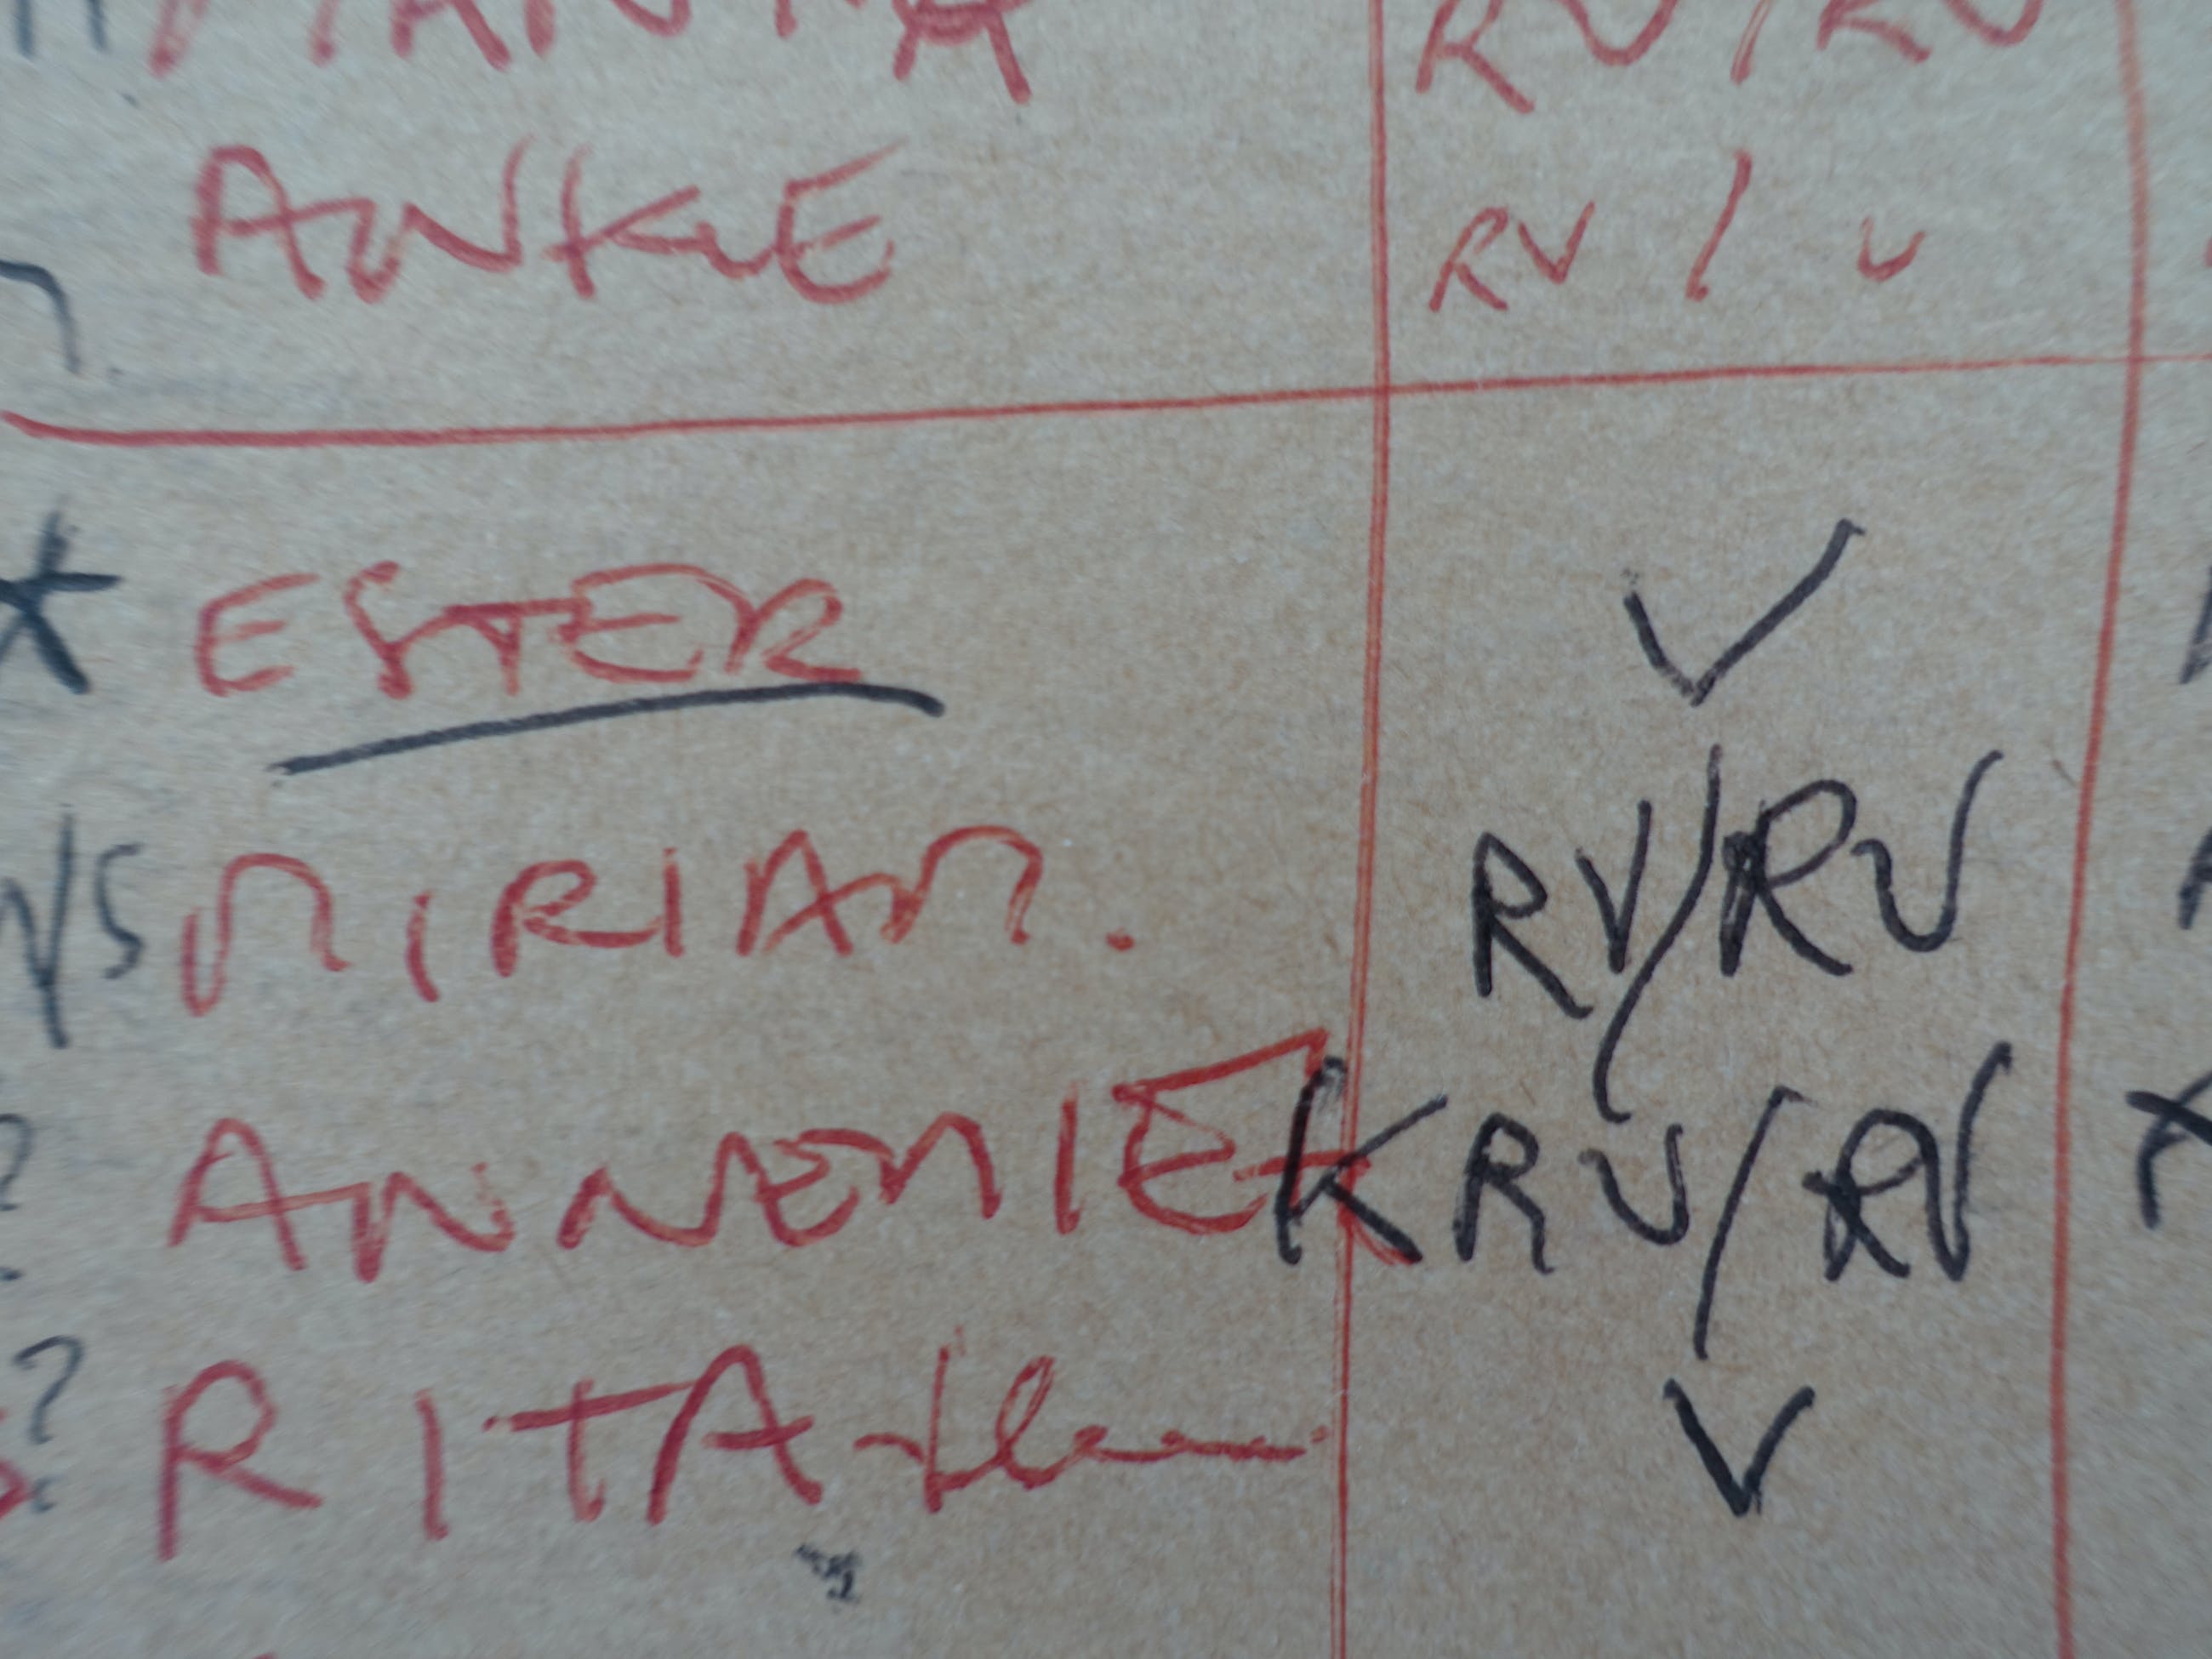 RV/RV
ANKE RV / V
* ESTER ✓
VS MIRIAM. RV/RV
? ANNEMIEK RV/RV
? RITA V